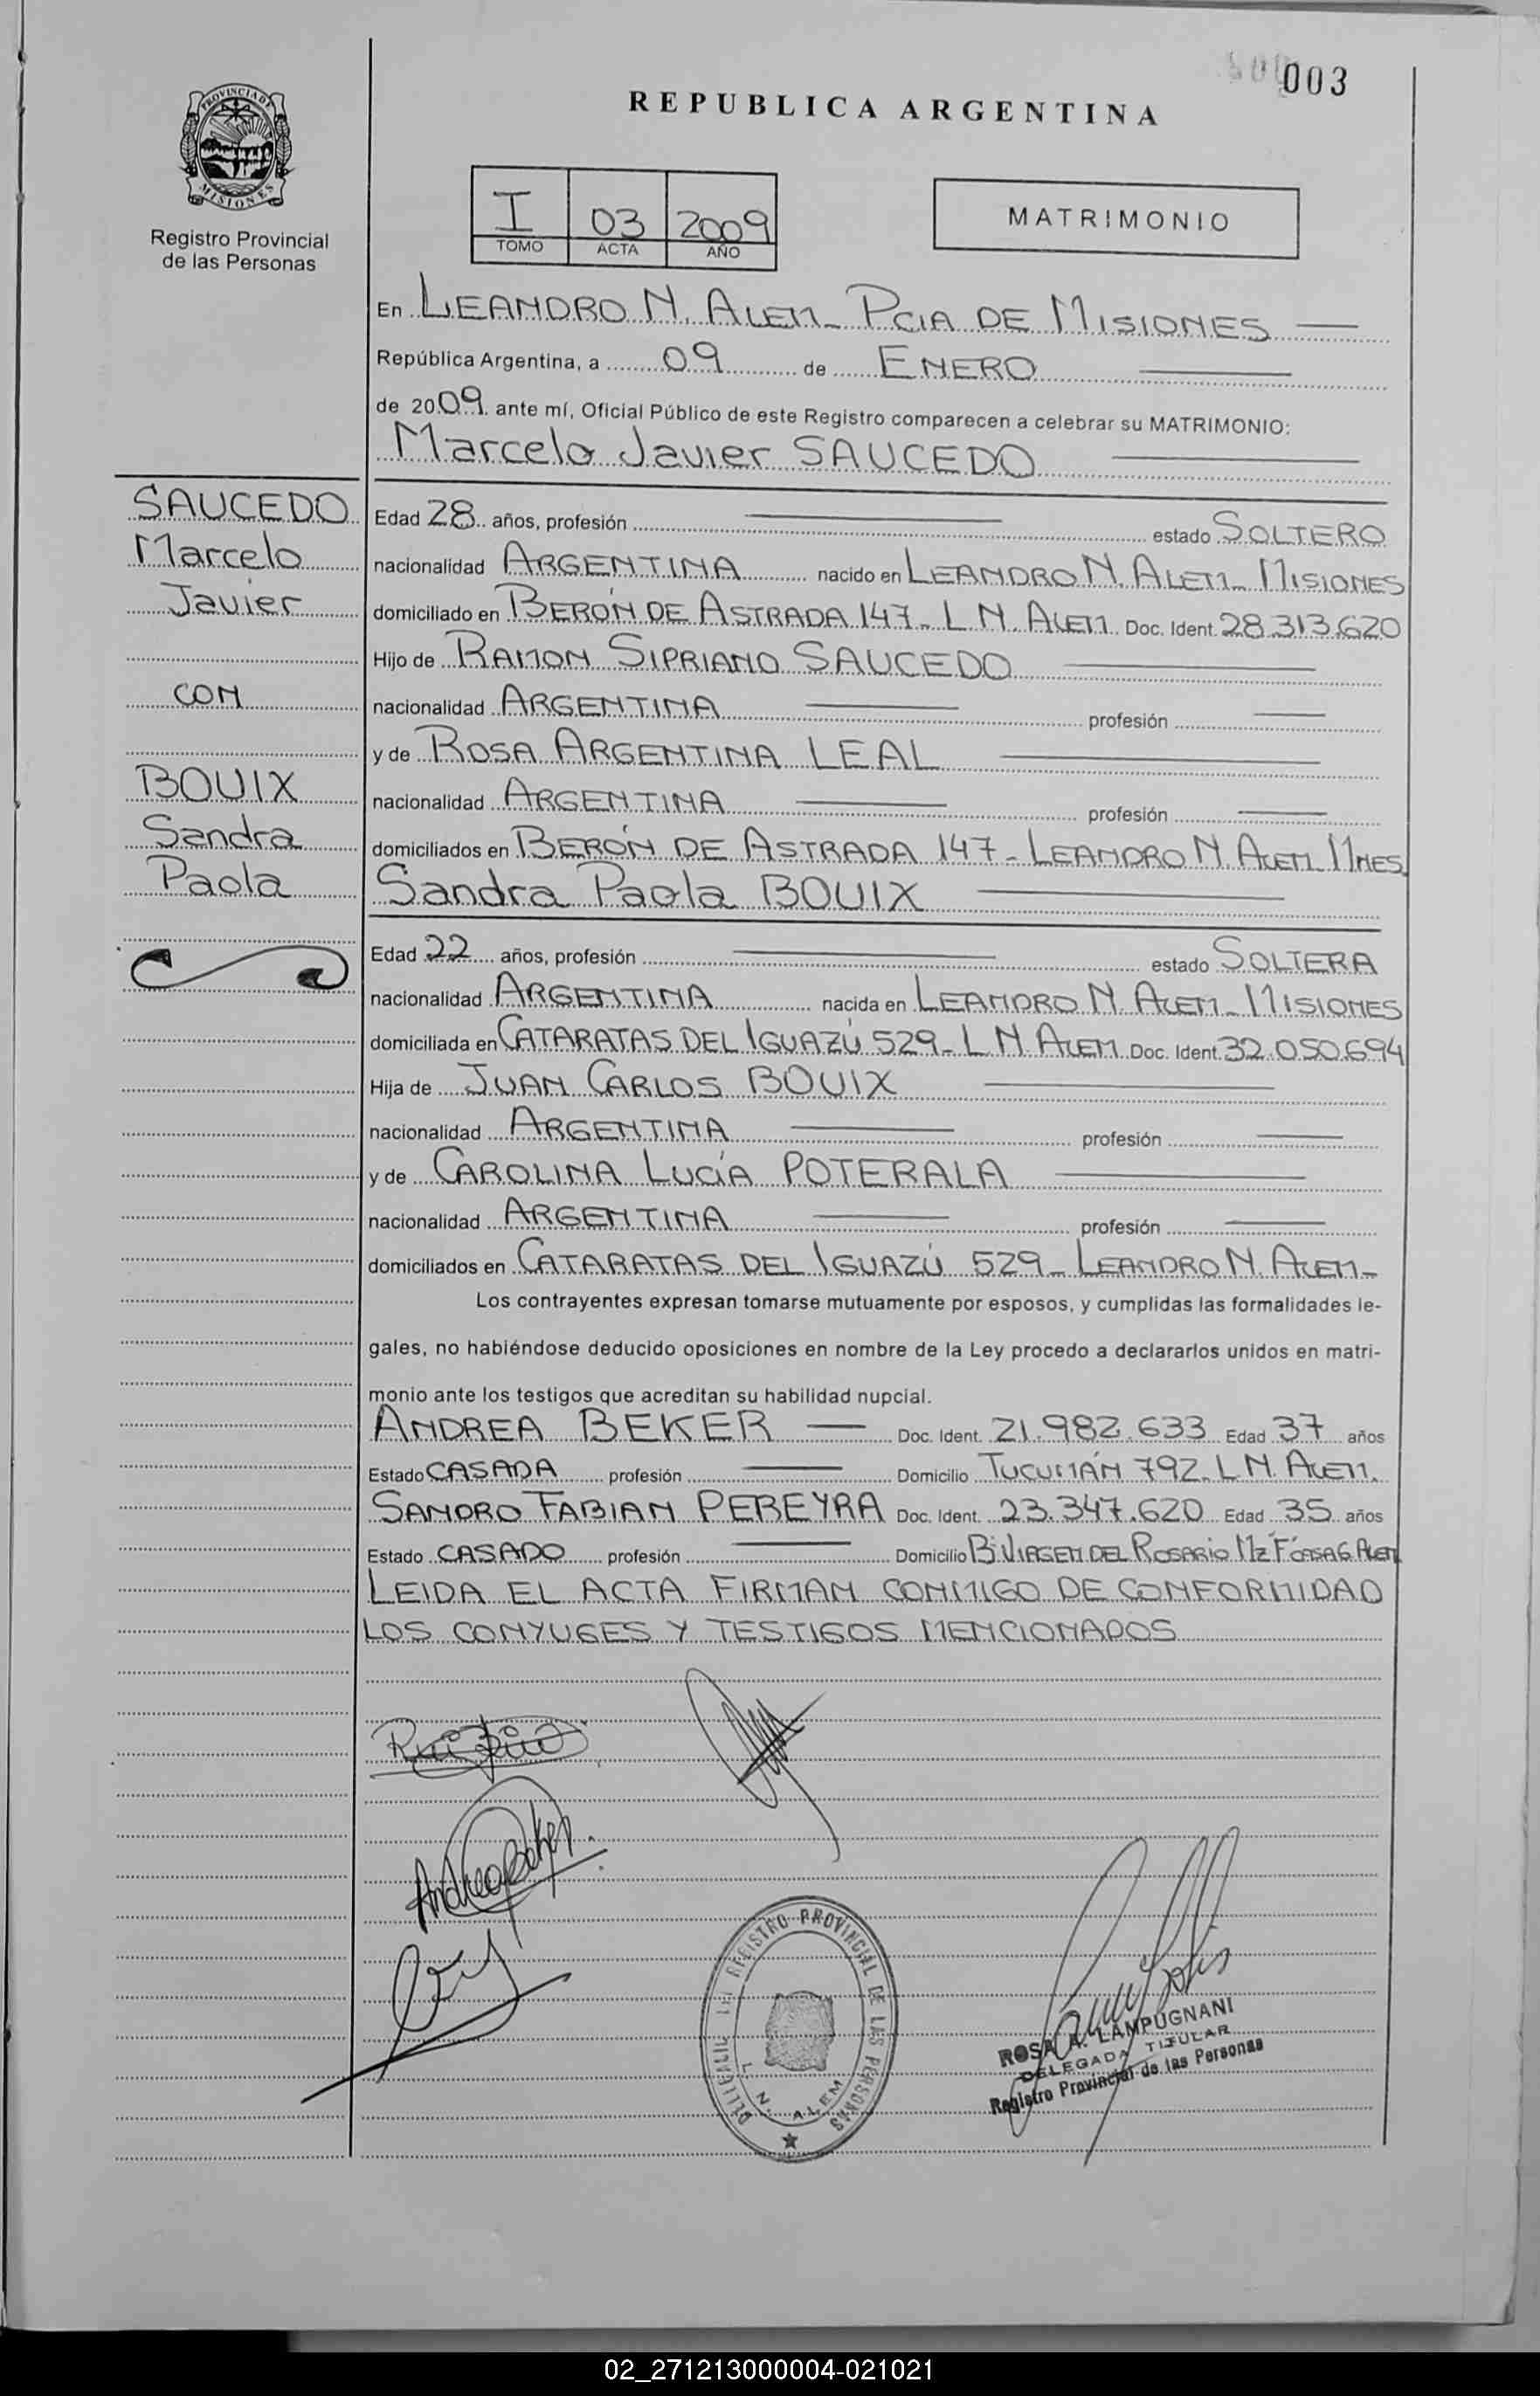 003
REPUBLICA ARGENTINA
PROVINCIA DE
MISIONES
Registro Provincial
de las Personas
I 03 2009
TOMO ACTA AÑO
MATRIMONIO
En LEANDRO N. ALEM - PCIA DE MISIONES
República Argentina, a 09 de ENERO
de 2009 ante mí, Oficial Público de este Registro comparecen a celebrar su MATRIMONIO:
Marcelo Javier SAUCEDO
SAUCEDO
Marcelo
Javier
CON
BOUIX
Sandra
Paola
Edad 28 años, profesión estado SOLTERO
nacionalidad ARGENTINA nacido en LEANDRO N. ALEM - MISIONES
domiciliado en BERÓN DE ASTRADA 147 - L N. ALEM Doc. Ident. 28.313.620
Hijo de RAMON SIPRIANO SAUCEDO
nacionalidad ARGENTINA profesión
y de ROSA ARGENTINA LEAL
nacionalidad ARGENTINA profesión
domiciliados en BERÓN DE ASTRADA 147 - LEANDRO N. ALEM MNES
Sandra Paola BOUIX
Edad 22 años, profesión estado SOLTERA
nacionalidad ARGENTINA nacida en LEANDRO N. ALEM - MISIONES
domiciliada en CATARATAS DEL IGUAZÚ 529 - L N ALEM Doc. Ident. 32.050.694
Hija de JUAN CARLOS BOUIX
nacionalidad ARGENTINA profesión
y de CAROLINA LUCÍA POTERALA
nacionalidad ARGENTINA profesión
domiciliados en CATARATAS DEL IGUAZÚ 529 - LEANDRO N. ALEM -
Los contrayentes expresan tomarse mutuamente por esposos, y cumplidas las formalidades le-
gales, no habiéndose deducido oposiciones en nombre de la Ley procedo a declararlos unidos en matri-
monio ante los testigos que acreditan su habilidad nupcial.
ANDREA BEKER Doc. Ident. 21.982.633 Edad 37 años
Estado CASADA profesión Domicilio TUCUMÁN 792 - L N. ALEM.
SANDRO FABIAN PEREYRA Doc. Ident. 23.347.620 Edad 35 años
Estado CASADO profesión Domicilio B° VIRGEN DEL ROSARIO MZ F CASA 6 ALEM
LEIDA EL ACTA FIRMAN CONMIGO DE CONFORMIDAD
LOS CONYUGES Y TESTIGOS MENCIONADOS
Andrea Beker
REGISTRO PROVINCIAL DE LAS PERSONAS
L. N. ALEM
ROSA A. LAMPUGNANI
DELEGADA TITULAR
Registro Provincial de las Personas
02_271213000004-021021